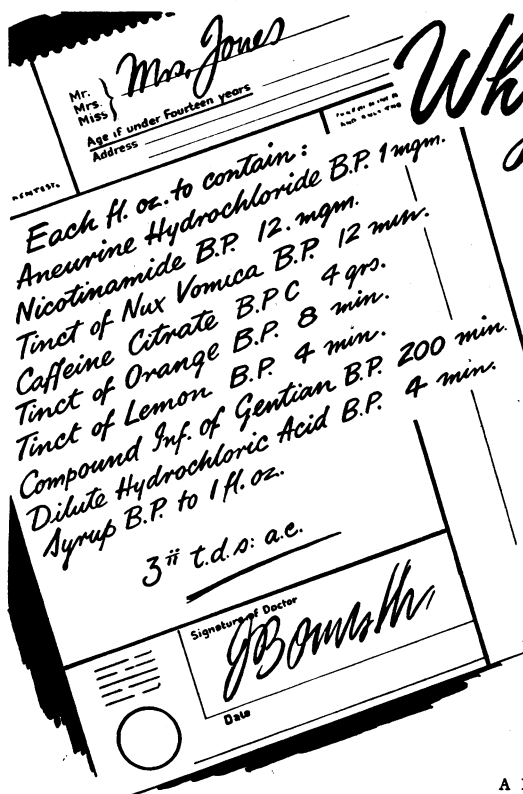 Mr.
Mrs.
Miss
Mrs. Jones
Wh
Age if under Fourteen years
Address
Each fl. oz. to contain:
Aneurine Hydrochloride B.P. 1 mgm.
Nicotinamide B.P. 12. mgm.
Tinct of Nux Vomica B.P. 12 min.
Caffeine Citrate B.P.C 4 grs.
Tinct of Orange B.P. 8 min.
Tinct of Lemon B.P. 4 min.
Compound Inf. of Gentian B.P. 200 min.
Dilute Hydrochloric Acid B.P. 4 min.
Syrup B.P. to 1 fl. oz.
ʒii t.d.s: a.c.
Signature of Doctor
Date
A